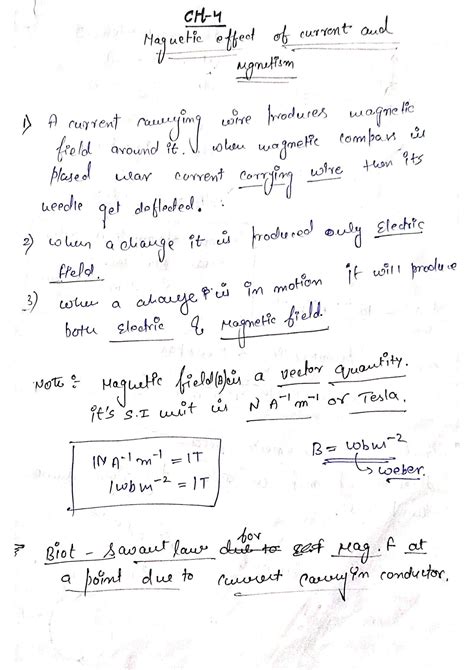 CH-4
Magnetic effect of current and
mgnetism
1) A current carrying wire produces magnetic
field around it. when magnetic compass is
plased near current carrying wire then its
needle get deflected.
2) when a change it is produced only Electric
field.
3) when a change is in motion it will produce
both Electric & Magnetic field
Note: Magnetic field(B) is a vector quantity.
it's S.I unit is N A⁻¹ m⁻¹ or Tesla.
B = wbm⁻²
weber.
1N A⁻¹ m⁻¹ = 1T
1wbm⁻² = 1T
for
Biot - Savart law due to Mag. F at
a point due to current carryin conductor.